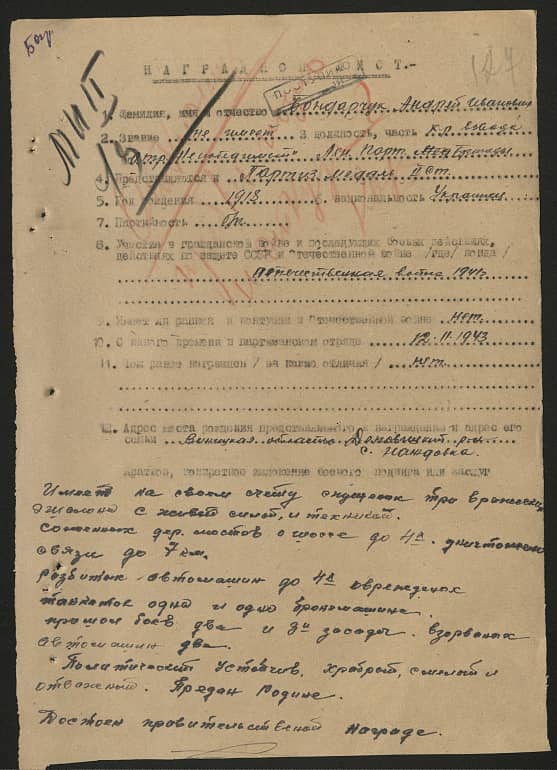 127
НАГРАДНОЙ ЛИСТ.-
МП II
1. Фамилия, имя и отчество Бондарчук Андрей Иванович
2. Звание не имеет 3 должность, часть к-р взвода
Лен. Парт.
4. Представляется к Партиз медаль II ст
5. Год рождения 1918 6. национальность Украинец
7. Партийность б/п
8. Участие в гражданской войне и последующих боевых действиях,
действиях по защите СССР и отечественной войне /где/ когда/
Отечественная война 1941
9. Имеет ли ранения и контузии в отечественной войне Нет.
10. С какого времени в партизанском отряде 12.II.1943
11. Чем ранее награжден /за какие отличия/ нет.
12. Адрес места рождения представляемого к награждению и адрес его
семьи область р-н
с.
Краткое, конкретное изложение боевого подвига или заслуг
Имеет на своем счету спущенок три вражеских
эшелона с живой силой, и техникой.
Сожженых дер. мостов о шоссе до 4х. уничтожено
связи до 7 км.
розбитых автомашин до 4х
танкеток одна и одна бронемашина.
прошол боев два и 3и засады. взорваных
автомашин два.
Полатически Устойчив, храбрый, смелый и
отважный. Предан Родине.
Достоен правительственой награде.